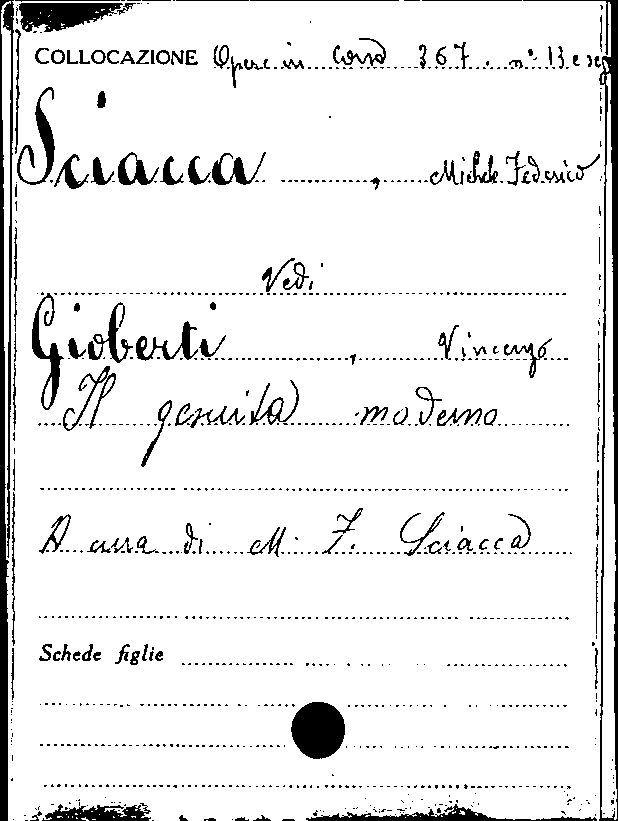 COLLOCAZIONE Opere in Corso 367. n° 13 e seg
Sciacca, Michele Federico
Vedi
Gioberti, Vincenzo
Il gesuita moderno
A cura di M. F. Sciacca
Schede figlie